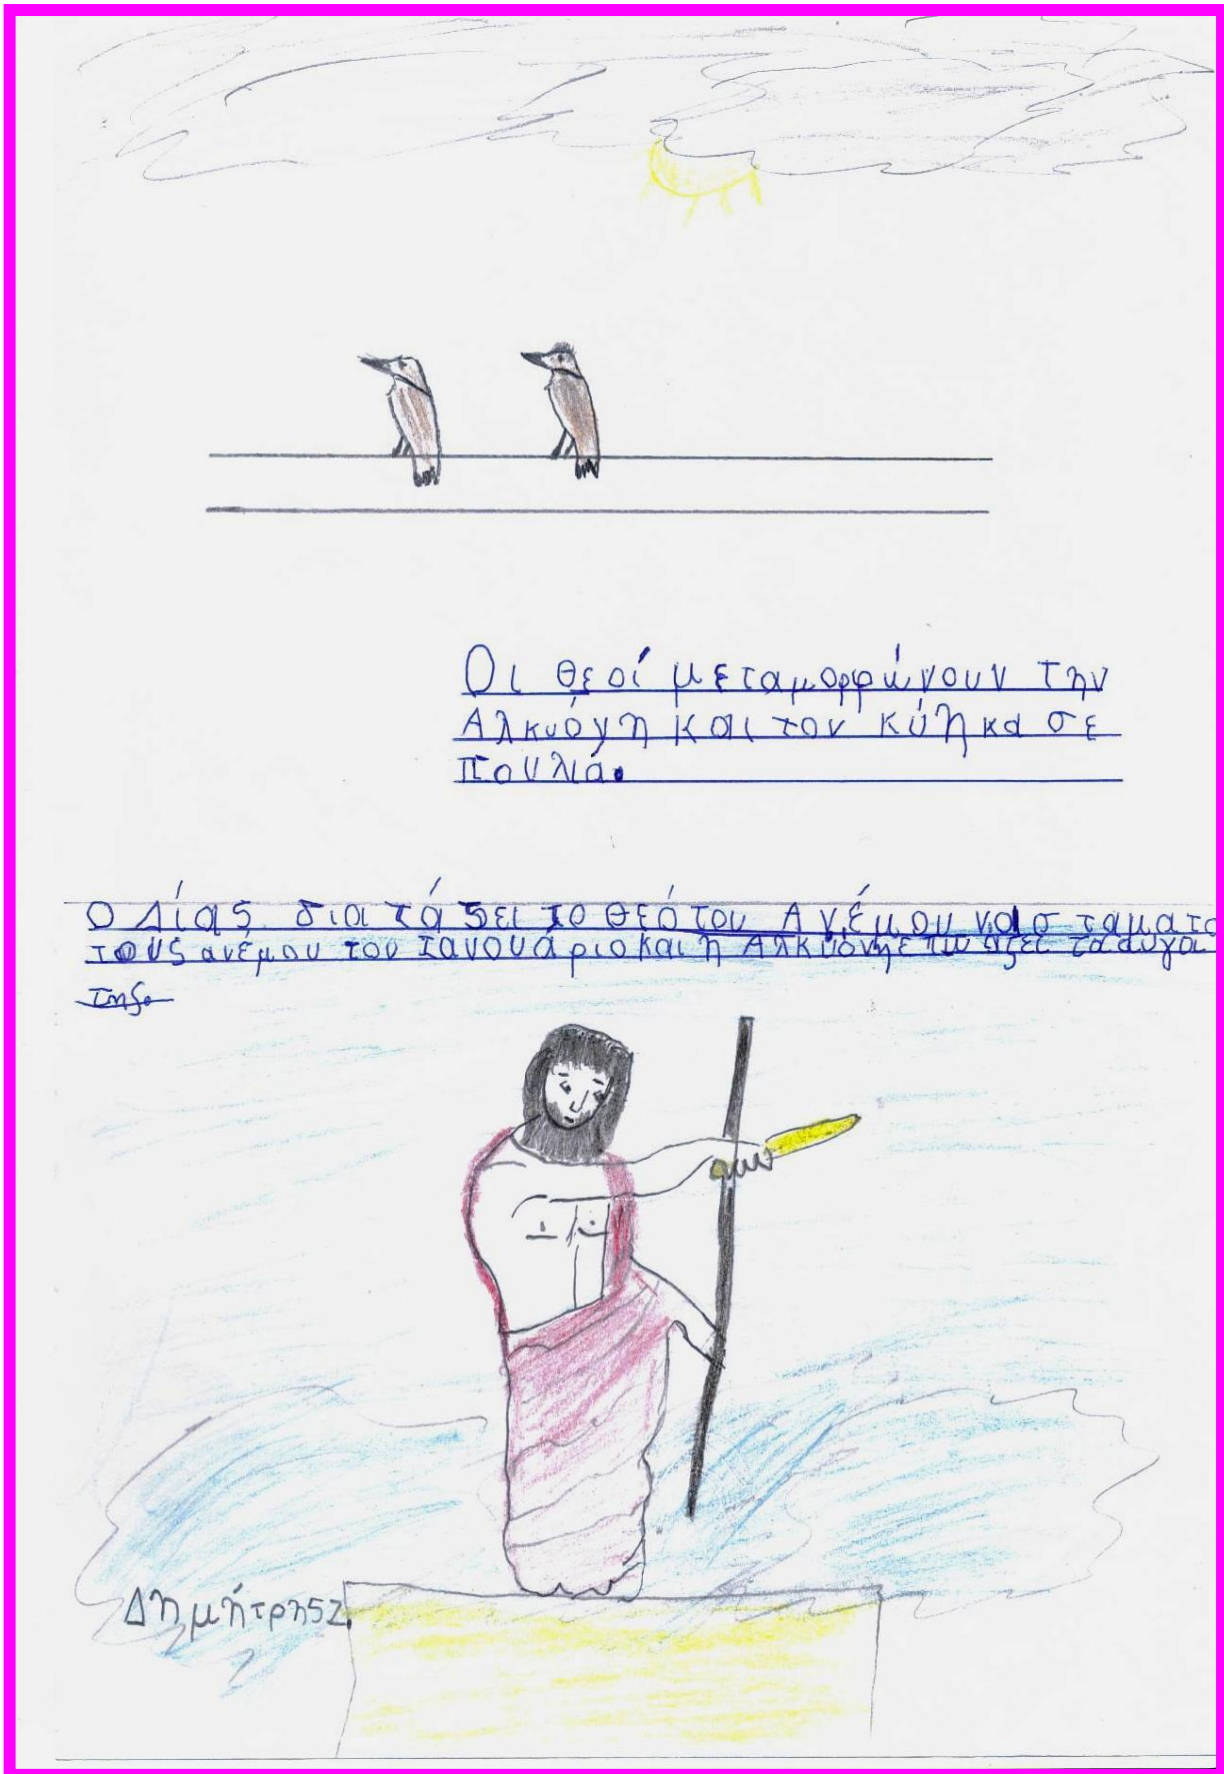 Οι θεοί μεταμορφώνουν την
Αλκυόνη και τον κύηκα σε
πουλιά.
Ο Δίας διατάζει το θεό του Ανέμου να σταματα
τους ανέμου του Ιανουάριο και η Αλκυόνη τα αυγα
της.
Δημήτρης Ζ.